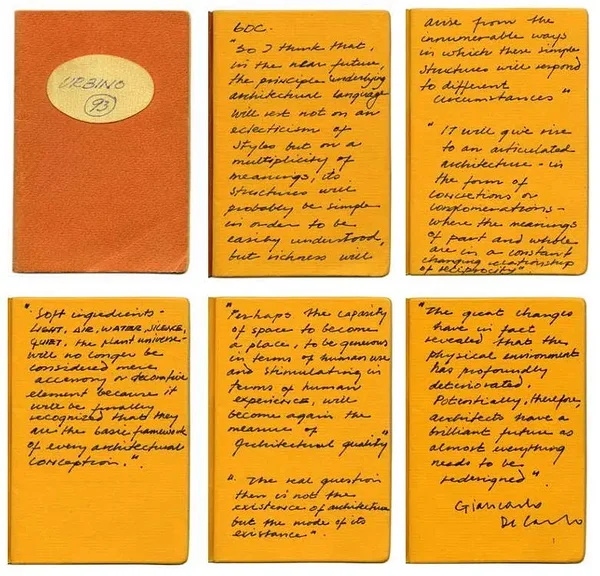 URBINO
93
GDC.
"So I think that,
in the near future,
the principle underlying
architectural language
will rest not on an
eclecticism of
styles but on a
multiplicity of
meanings; its
structures will
probably be simple
in order to be
easily understood,
but richness will
arise from the
innumerable ways
in which these simple
structures will respond
to different
circumstances"
"It will give rise
to an articulated
architecture - in
the form of
concretions or
conglomerations -
where the meanings
of part and whole
are in a constant
changing relationship
of reciprocity"
"Soft ingredients -
LIGHT, AIR, WATER, SILENCE,
QUIET, the plant universe -
will no longer be
considered mere
accessory or decorative
element because it
will be finally
recognized that they
are the basic framework
of every architectural
conception.".
"Perhaps the capacity
of space to become
a place, to be generous
in terms of human use
and stimulating in
terms of human
experience, will
become again the
measure of
architectural quality"
"The real question
then is not the
existence of architecture
but the mode of its
existance".
"The great changes
have in fact
revealed that the
physical environment
has profoundly
deteriorated.
Potentially, therefore,
architects have a
brilliant future as
almost everything
needs to be
redesigned".
Giancarlo
Di Carlo